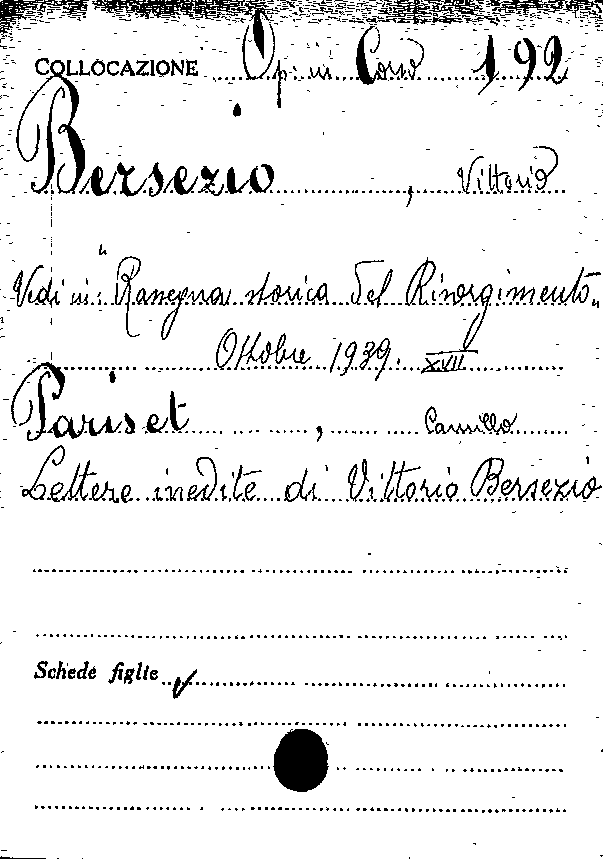 COLLOCAZIONE Op. in Corso 192
Bersezio, Vittorio
Vedi in: "Rassegna storica del Risorgimento"
Ottobre 1939. XVII
Pariset, Camillo
Lettere inedite di Vittorio Bersezio
Schede figlie ✓